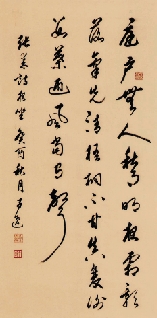 庭戶無人秋月明夜霜欲
落氣先清梧桐真不甘衰謝
數葉迎風尚有聲
張耒詩夜坐 癸酉秋月